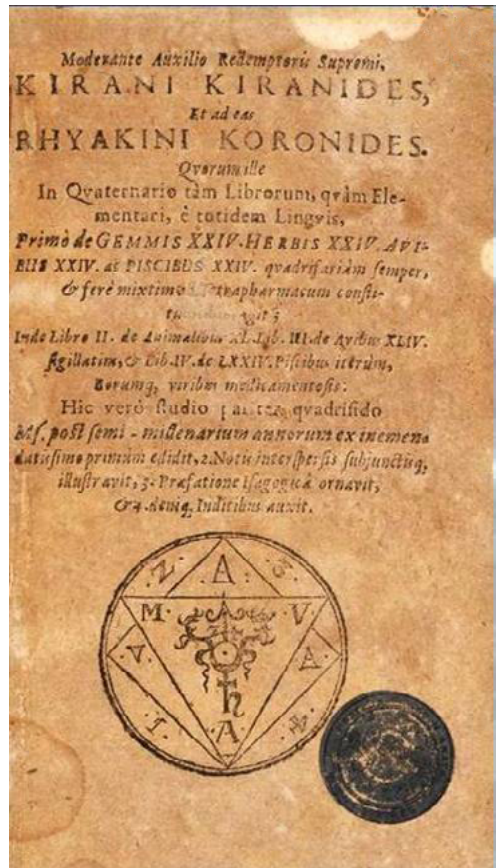 Moderante Auxilio Redemptoris Supremi,
KIRANI KIRANIDES,
Et ad eas
RHYAKINI KORONIDES.
Qvorum ille
In Qvaternario tàm Librorum, qvàm Ele-
mentari, è totidem Lingvis,
Primò de GEMMIS XXIV. HERBIS XXIV. AVI-
BUS XXIV. ac PISCIBUS XXIV. qvadrifariàm semper,
& ferè mixtim Tetrapharmacum consti-
agit;
Inde Libro II. de Animalibus XL. Lib. III. de Avibus XLIV.
sigillatim, & Lib. IV. de LXXIV. Piscibus iterùm,
Eorumq, viribus medicamentosis.
Hic verò studio qvadrifido
Ms. post semi-millenarium annorum ex inemen-
datissimo primùm edidit, 2. Notis interspersis subjunctisq,
illustravit, 3. Præfatione Isagogicâ ornavit,
& 4. deniq, Indicibus auxit.
2 A 3
M V
A A
1 A 4